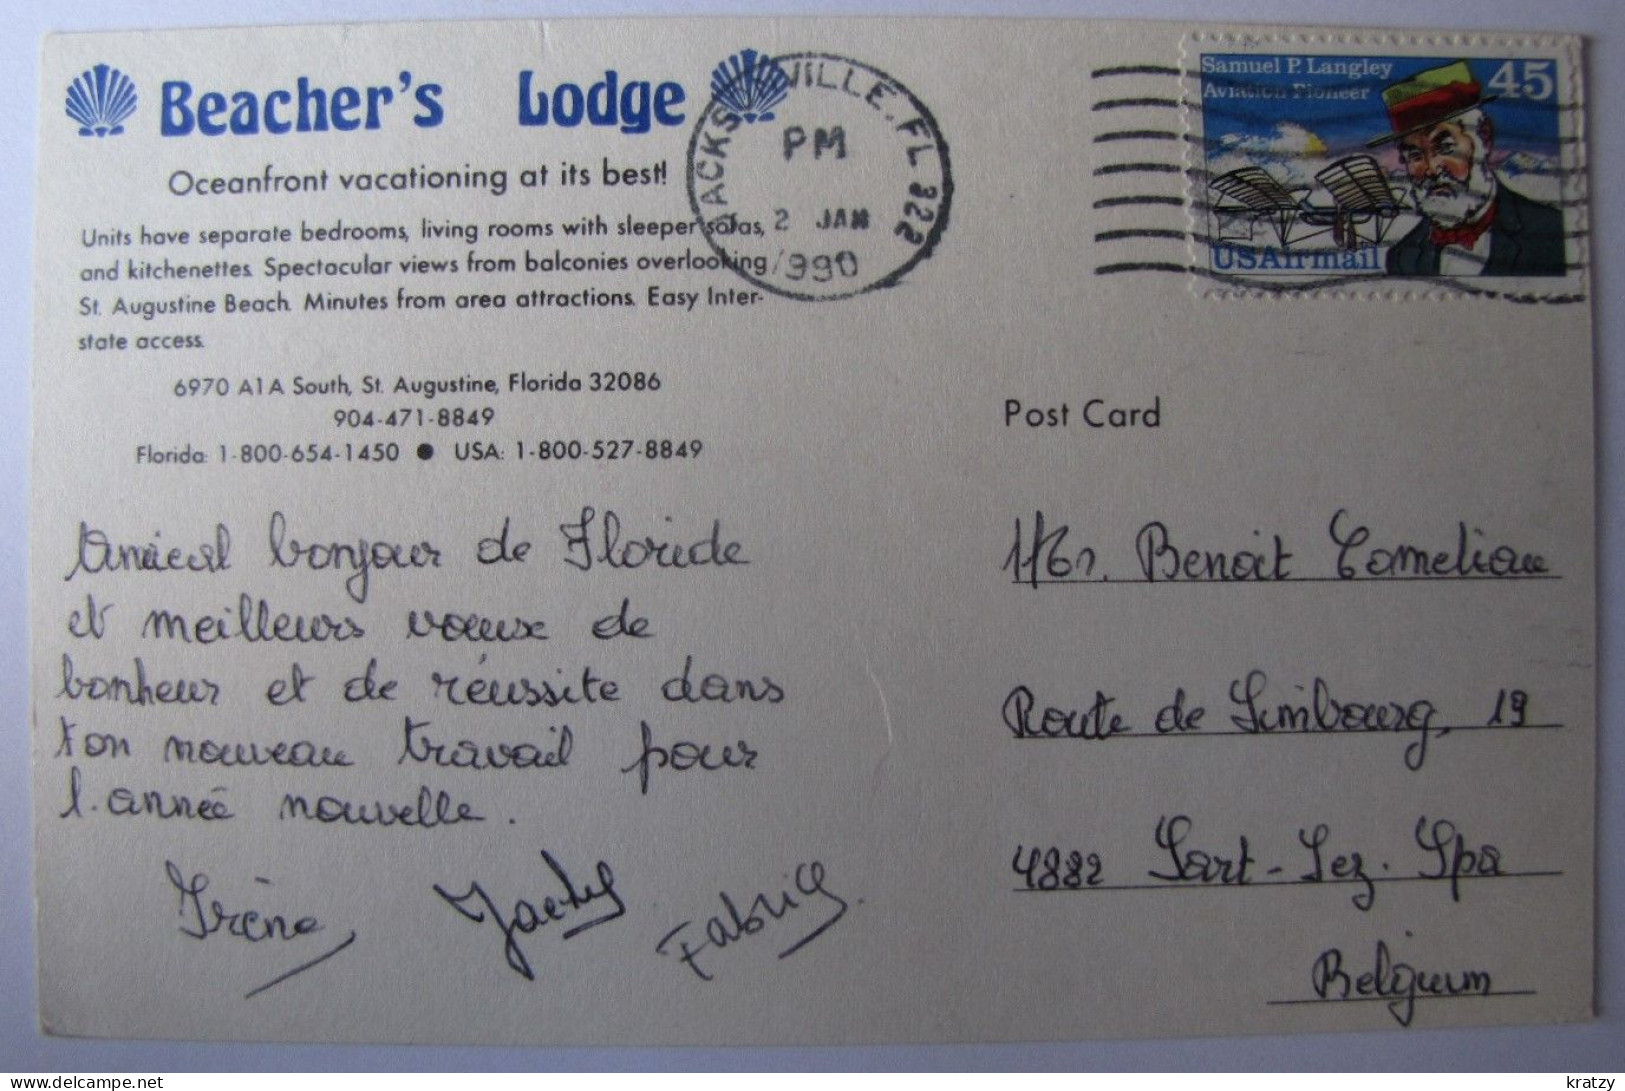 Beacher's Lodge
Oceanfront vacationing at its best!
Units have separate bedrooms, living rooms with sleeper sofas,
and kitchenettes. Spectacular views from balconies overlooking
St. Augustine Beach. Minutes from area attractions. Easy Inter-
state access.
6970 A1A South, St. Augustine, Florida 32086
904-471-8849
Florida: 1-800-654-1450 ● USA: 1-800-527-8849
JACKSONVILLE, FL 322
PM
2 JAN
1990
Samuel P. Langley
Aviation Pioneer
45
USAirmail
Post Card
Amical bonjour de Floride
et meilleurs vœux de
bonheur et de réussite dans
ton nouveau travail pour
l'année nouvelle.
Irène Jacky Fabrice
Benoit
Route de Limbourg, 19
4882 Sart-Lez-Spa
Belgium
kratzy